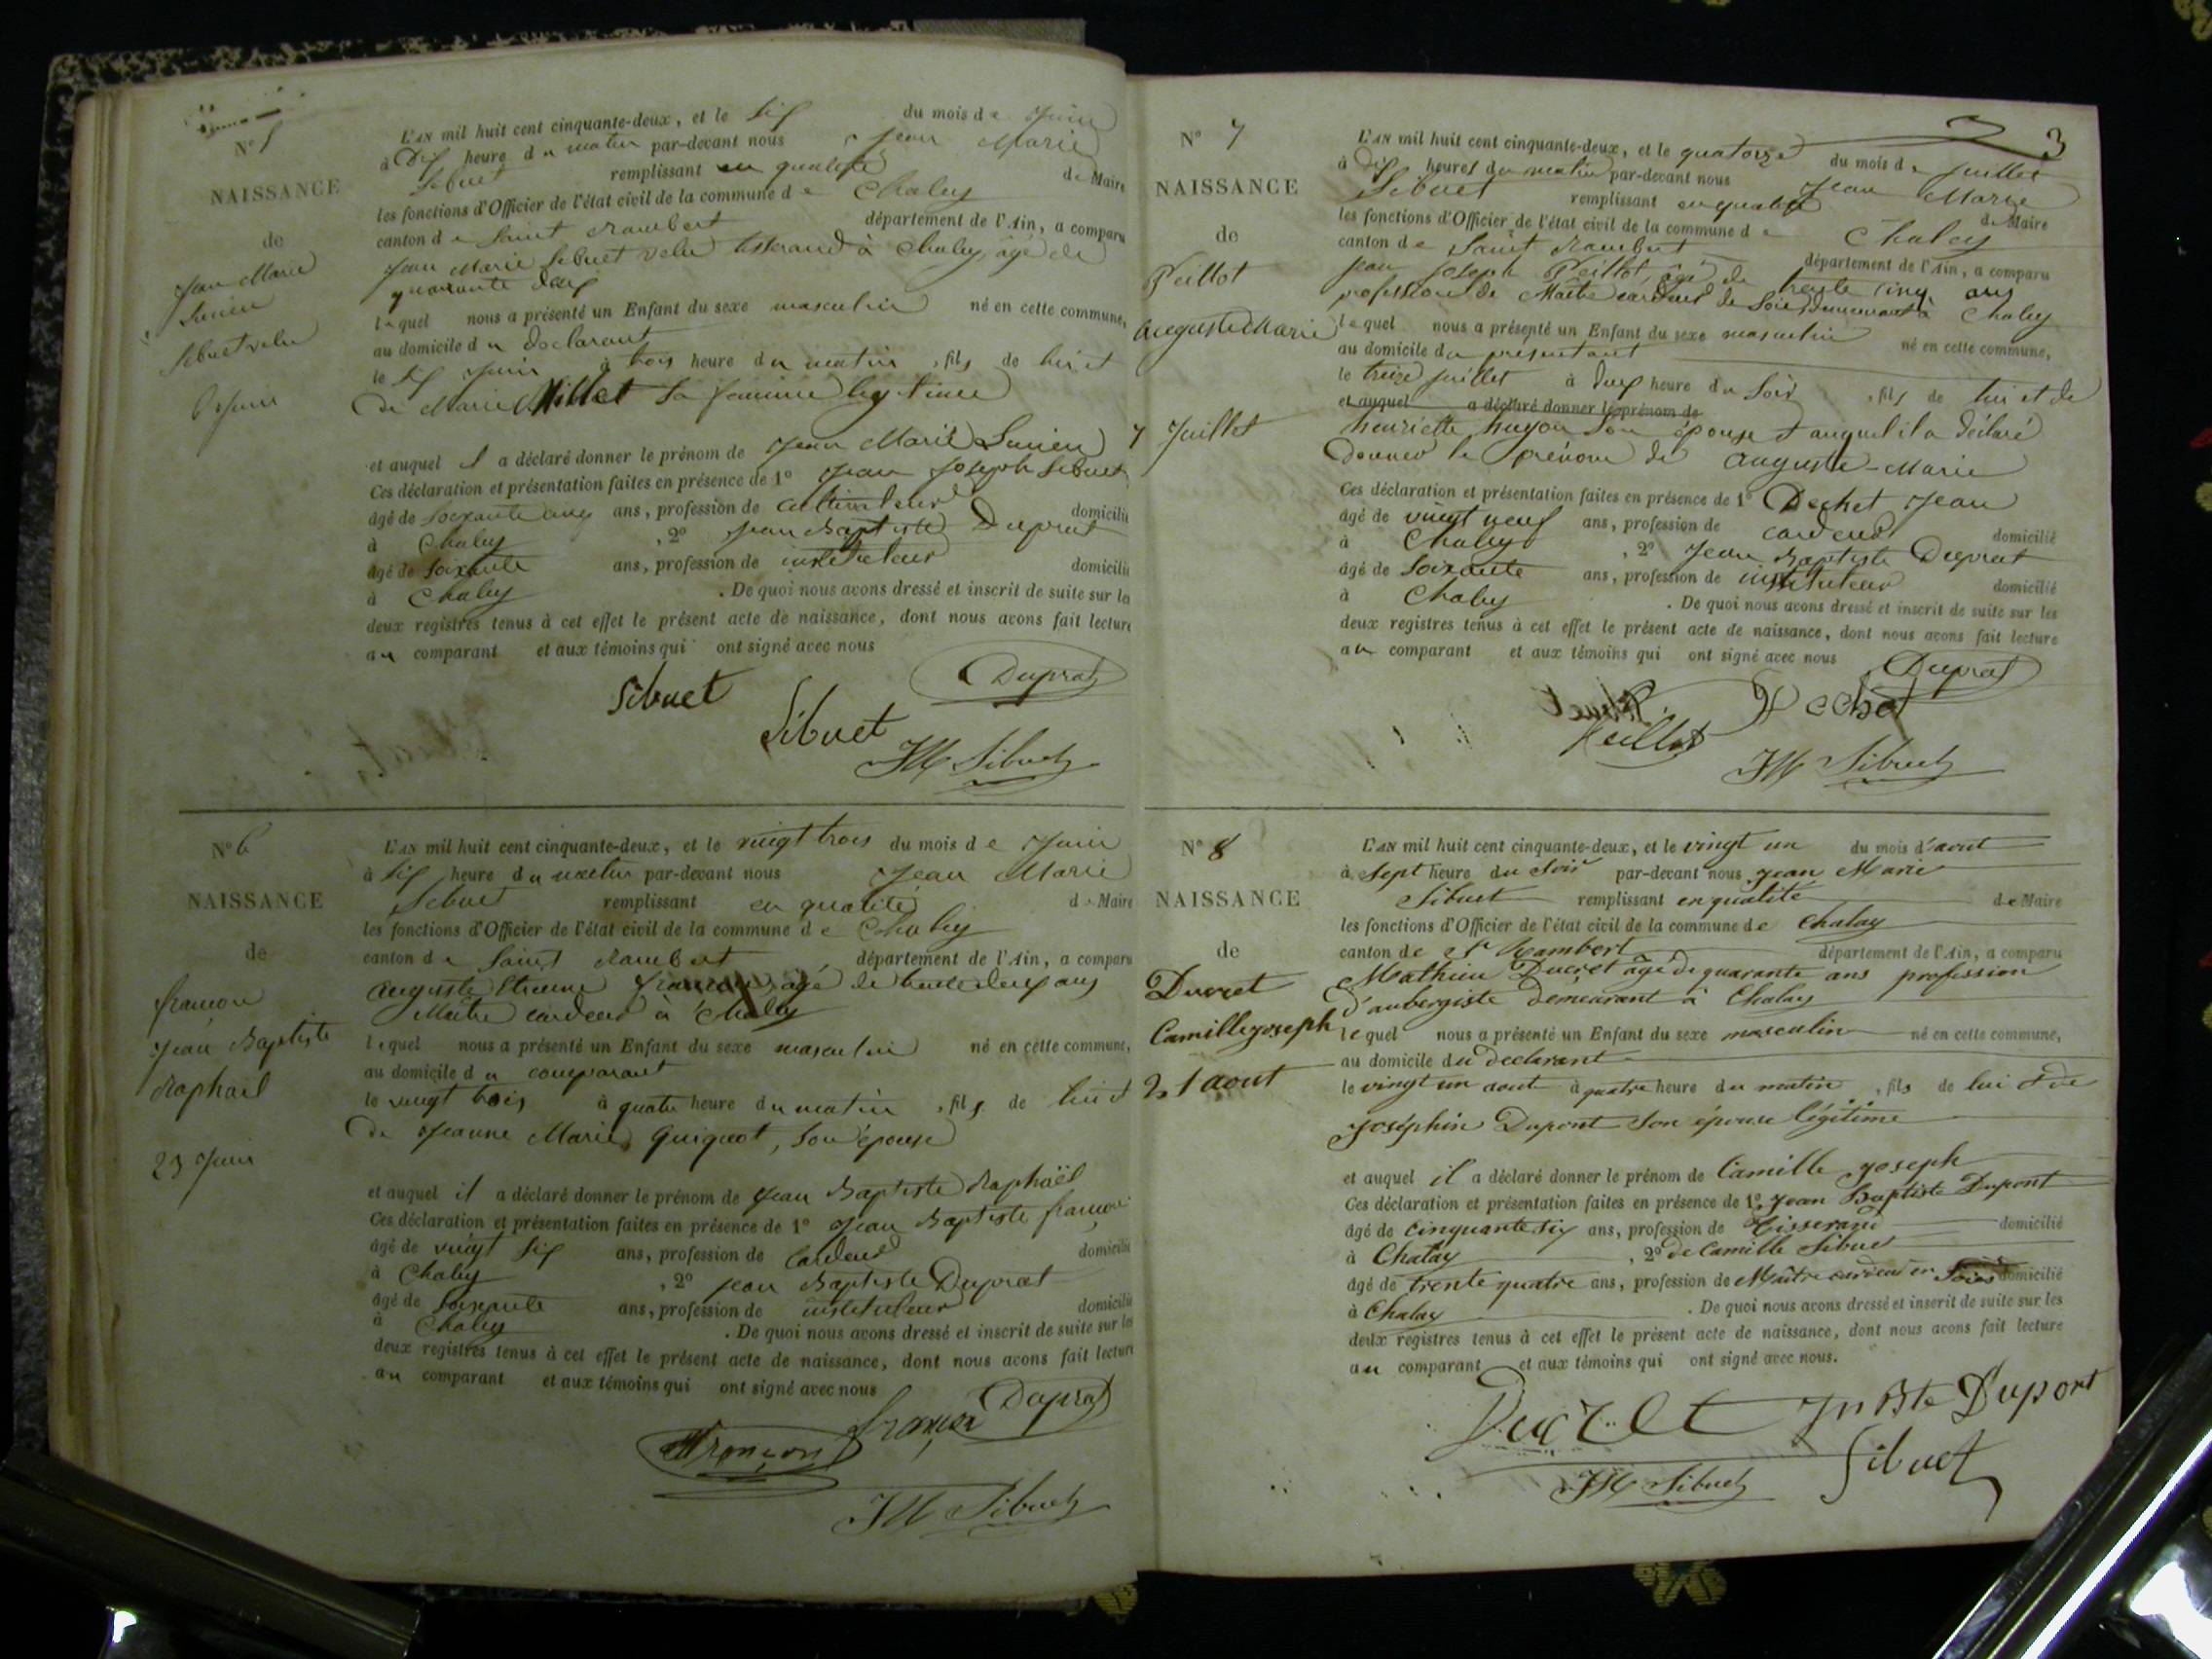 N° 5
NAISSANCE
de
Jean Marie
Lucien
Sibuet velu
6 Juin
L'AN mil huit cent cinquante-deux, et le six du mois de Juin
à dix heure du matin par-devant nous Jean Marie
Sibuet remplissant en qualité de Maire
les fonctions d'Officier de l'état civil de la commune de Chaley
canton de Saint Rambert département de l'Ain, a comparu
Jean Marie Sibuet velu tisserand à Chaley, âgé de
quarante deux
lequel nous a présenté un Enfant du sexe masculin né en cette commune,
au domicile du déclarant
le six Juin à trois heure du matin, fils de lui et
de Marie Millet sa femme légitime
et auquel il a déclaré donner le prénom de Jean Marie Lucien
Ces déclaration et présentation faites en présence de 1° Jean Joseph Sibuet
âgé de soixante cinq ans, profession de cultivateur domicilié
à Chaley, 2° Jean Baptiste Duprat
âgé de soixante ans, profession de instituteur domicilié
à Chaley. De quoi nous avons dressé et inscrit de suite sur les
deux registres tenus à cet effet le présent acte de naissance, dont nous avons fait lecture
au comparant et aux témoins qui ont signé avec nous
Duprat
Sibuet
Sibuet
JM Sibuet
N° 6
NAISSANCE
de
françon
Jean Baptiste
Raphaël
23 Juin
L'AN mil huit cent cinquante-deux, et le vingt trois du mois de Juin
à six heure du matin par-devant nous Jean Marie
Sibuet remplissant en qualité de Maire
les fonctions d'Officier de l'état civil de la commune de Chaley
canton de Saint Rambert, département de l'Ain, a comparu
Auguste Etienne françon, âgé de trente deux ans
Maître cardeur à Chaley
lequel nous a présenté un Enfant du sexe masculin né en cette commune,
au domicile du comparant
le vingt trois à quatre heure du matin, fils de lui et
de Jeanne Marie Guiguot, son épouse
et auquel il a déclaré donner le prénom de Jean Baptiste Raphaël
Ces déclaration et présentation faites en présence de 1° Jean Baptiste françon
âgé de vingt six ans, profession de Cardeur domicilié
à Chaley, 2° Jean Baptiste Duprat
âgé de Soixante ans, profession de instituteur domicilié
à Chaley. De quoi nous avons dressé et inscrit de suite sur les
deux registres tenus à cet effet le présent acte de naissance, dont nous avons fait lecture
au comparant et aux témoins qui ont signé avec nous
Duprat
françon
françon
JM Sibuet
3
N° 7
NAISSANCE
de
Peillot
Auguste Marie
7 Juillet
L'AN mil huit cent cinquante-deux, et le quatorze du mois de Juillet
à dix heures du matin par-devant nous Jean Marie
Sibuet remplissant en qualité de Maire
les fonctions d'Officier de l'état civil de la commune de Chaley
canton de Saint Rambert département de l'Ain, a comparu
Jean Joseph Peillot, âgé de trente cinq ans
profession de Maître cardeur de Soie, demeurant à Chaley
lequel nous a présenté un Enfant du sexe masculin né en cette commune,
au domicile du présentant
le treize juillet à deux heure du Soir, fils de lui et de
et auquel a déclaré donner le prénom de
henriette hugon son épouse & auquel il a déclaré
donner le prénom de Auguste-Marie
Ces déclaration et présentation faites en présence de 1° Dechet Jean
âgé de vingt neuf ans, profession de cardeur domicilié
à Chaley, 2° Jean Baptiste Duprat
âgé de Soixante ans, profession de instituteur domicilié
à Chaley. De quoi nous avons dressé et inscrit de suite sur les
deux registres tenus à cet effet le présent acte de naissance, dont nous avons fait lecture
au comparant et aux témoins qui ont signé avec nous
Duprat
Dechet
Peillot
JM Sibuet
N° 8
NAISSANCE
de
Ducret
Camille joseph
21 aout
L'AN mil huit cent cinquante-deux, et le vingt un du mois d'aout
à Sept heure du Soir par-devant nous Jean Marie
Sibuet remplissant en qualité de Maire
les fonctions d'Officier de l'état civil de la commune de Chalay
canton de St Rambert département de l'Ain, a comparu
Mathieu Ducret âgé de quarante ans profession
d'aubergiste demeurant à Chalay
lequel nous a présenté un Enfant du sexe masculin né en cette commune,
au domicile du déclarant
le vingt un aout à quatre heure du matin, fils de lui & de
Joséphin Dupont Son épouse légitime
et auquel il a déclaré donner le prénom de Camille joseph
Ces déclaration et présentation faites en présence de 1° Jean Baptiste Dupont
âgé de cinquante six ans, profession de Tisserand domicilié
à Chalay, 2° de Camille Sibuet
âgé de trente quatre ans, profession de Maître cardeur en Soies domicilié
à Chalay. De quoi nous avons dressé et inscrit de suite sur les
deux registres tenus à cet effet le présent acte de naissance, dont nous avons fait lecture
au comparant et aux témoins qui ont signé avec nous.
Ducret
Jn Bte Dupont
JM Sibuet
Sibuet